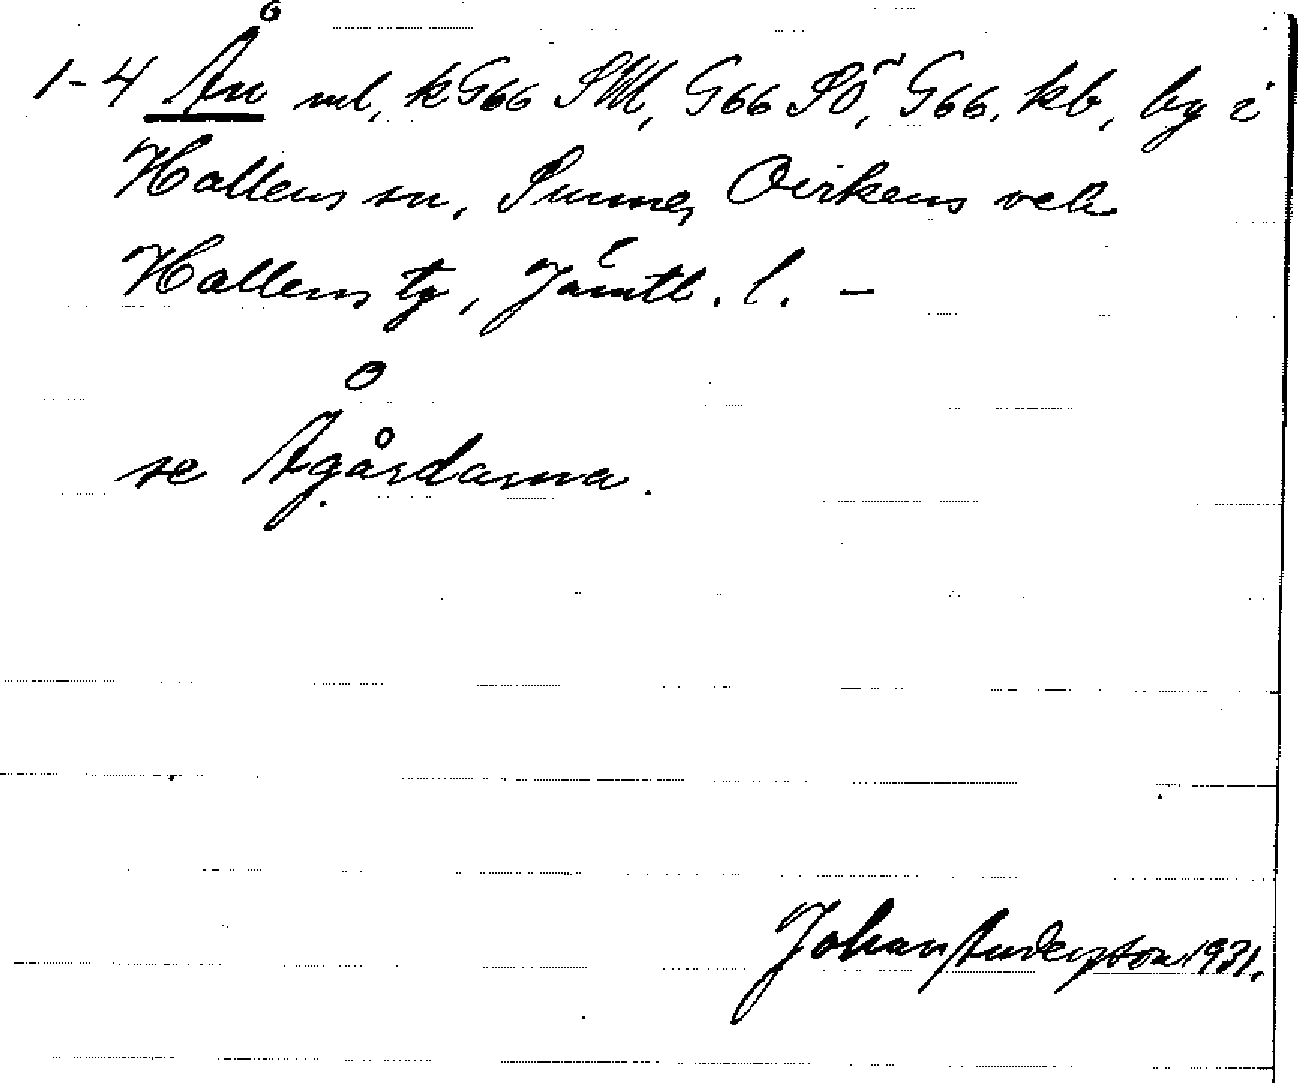 1-4 Ån ml, k G66 SM, G66 SÖ, G66. kb, by i
Hallens sn, Sunne, Ovikens och
Hallens tg, Jämtl. l. –
se Ågårdarna.
Johan Anderzson 1931.